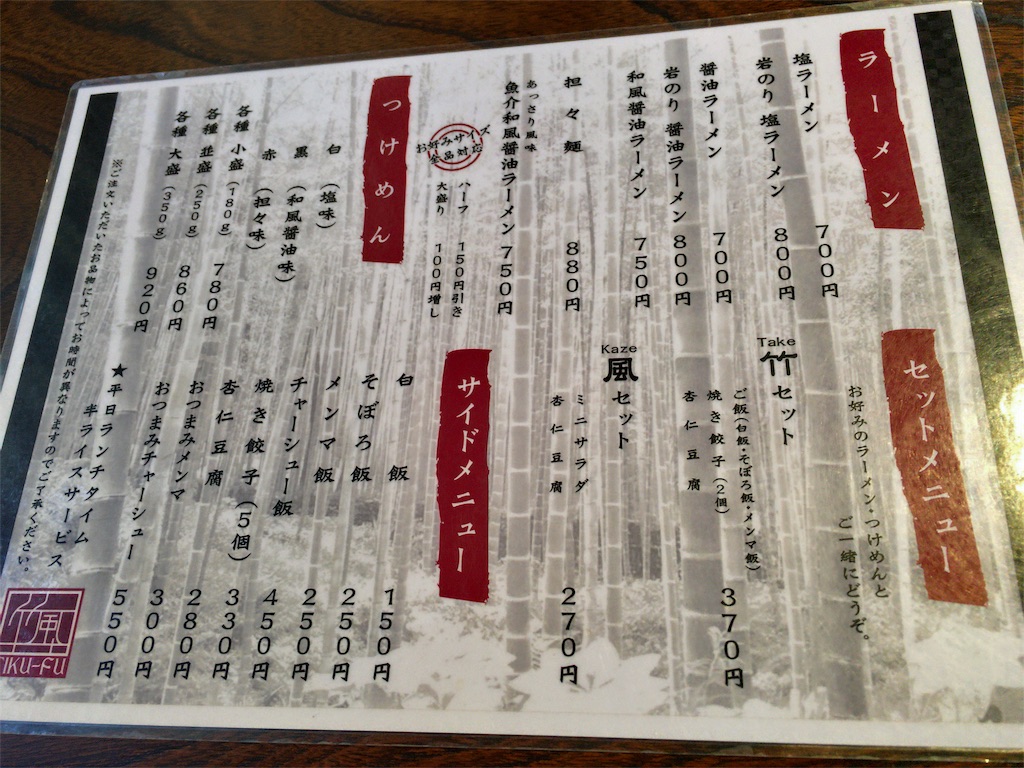 ラーメン
塩ラーメン 700円
岩のり 塩ラーメン 800円
醤油ラーメン 700円
岩のり 醤油ラーメン 800円
和風醤油ラーメン 750円
担々麺 880円
あっさり風味
魚介和風醤油ラーメン 750円
お好みサイズ
全品対応
ハーフ 150円引き
大盛り 100円増し
つけめん
白 (塩味)
黒 (和風醤油味)
赤 (担々味)
各種 小盛 (180g) 780円
各種 並盛 (250g) 860円
各種 大盛 (350g) 920円
※ご注文いただいたお品物によってお時間が異なりますのでご了承ください。
セットメニュー
お好みのラーメン・つけめんと
ご一緒にどうぞ。
Take
竹セット
ご飯(白飯・そぼろ飯・メンマ飯)
焼き餃子(2個)
杏仁豆腐
370円
Kaze
風セット
ミニサラダ
杏仁豆腐
270円
サイドメニュー
白飯 150円
そぼろ飯 250円
メンマ飯 250円
チャーシュー飯 450円
焼き餃子(5個) 330円
杏仁豆腐 280円
おつまみメンマ 300円
おつまみチャーシュー 550円
★平日ランチタイム
半ライスサービス
竹風
TIKU-FU